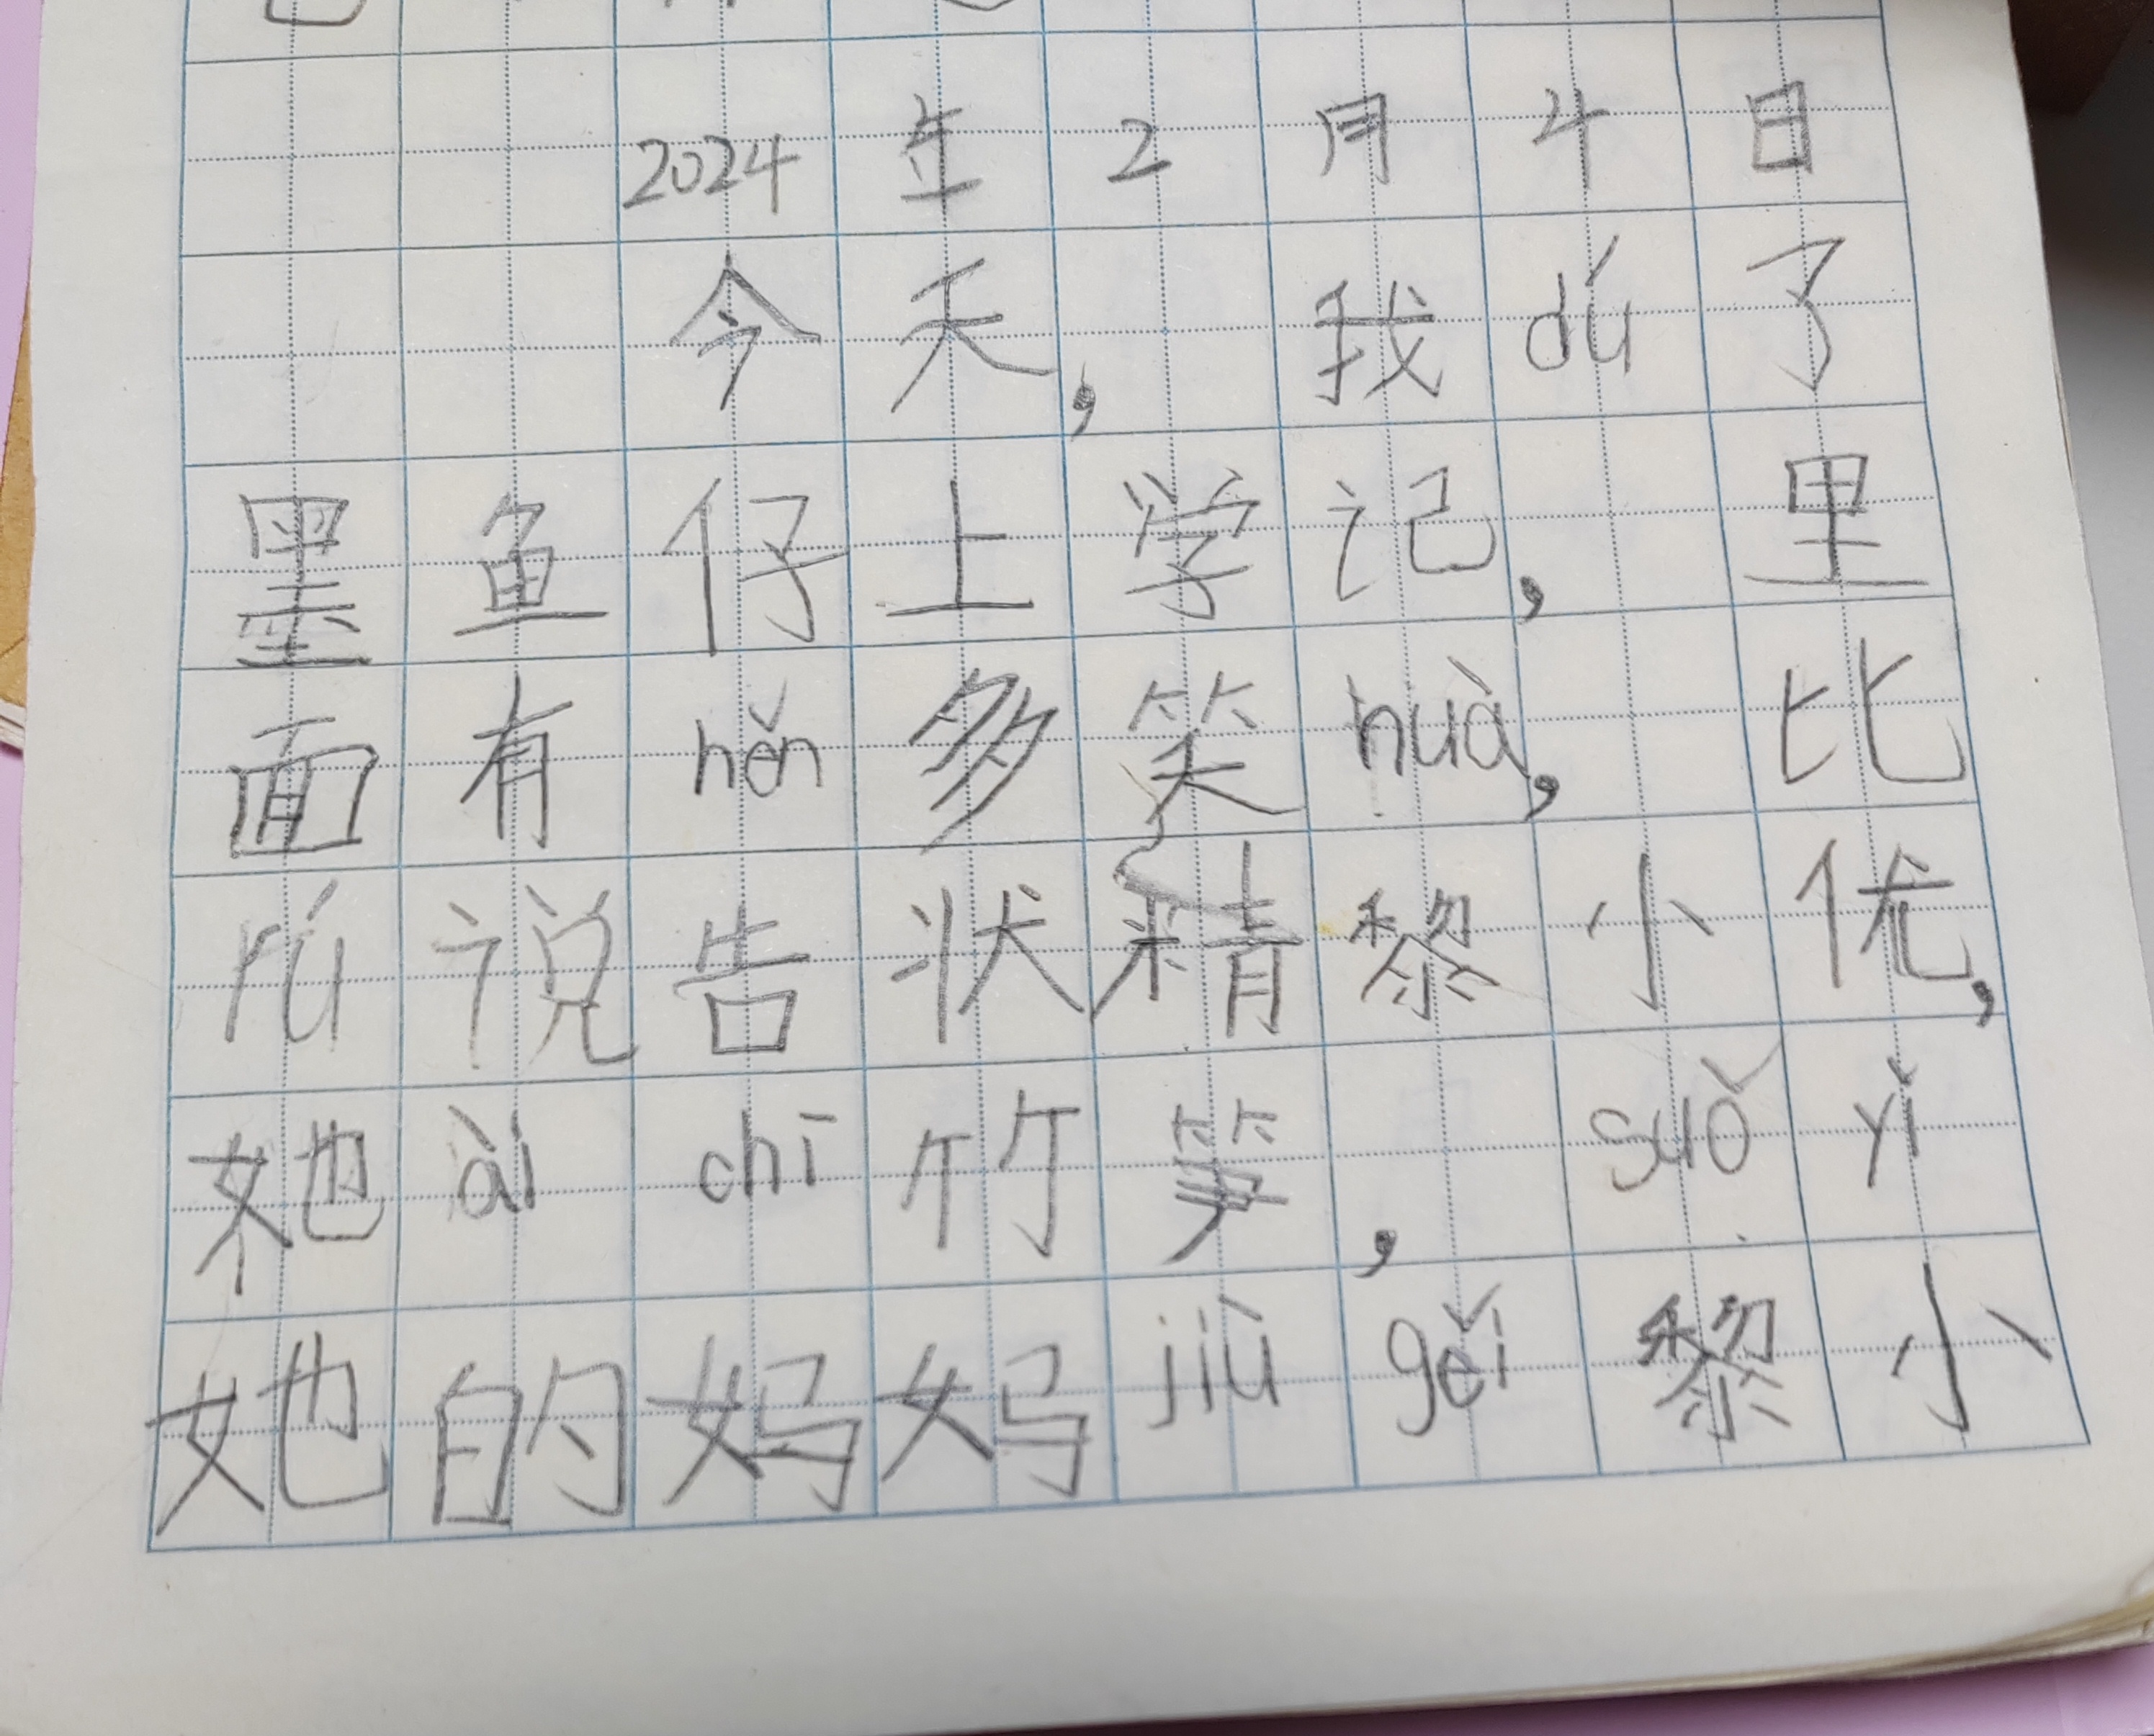 2024年2月4日
今天，我dú了
墨鱼仔上学记，里
面有hěn多笑huà，比
rú说告状精黎小优，
她ài chī竹笋，suǒ yǐ
她的妈妈jiù gěi黎小